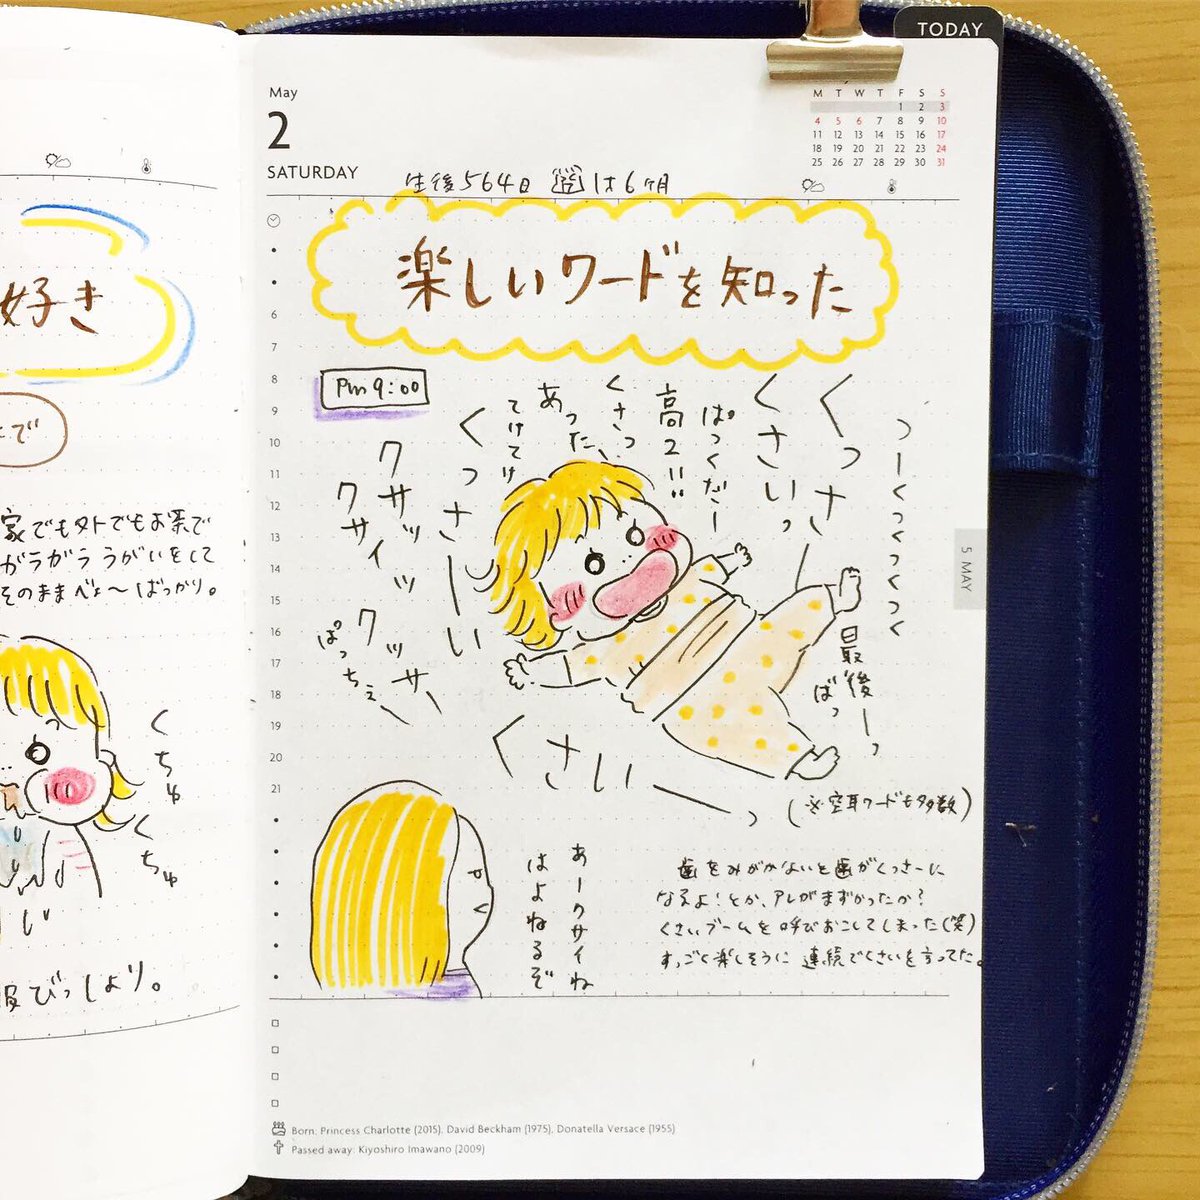 好き
で
家でも外でもお茶で
ガラガラうがいをして
そのままべぇ〜ばっかり。
くちゅ
くちゅ
服びっしょり。
TODAY
May
2
SATURDAY
M T W T F S S
1 2 3
4 5 6 7 8 9 10
11 12 13 14 15 16 17
18 19 20 21 22 23 24
25 26 27 28 29 30 31
生後564日
1才6ヶ月
楽しいワードを知った
Pm 9:00
6
7
8
9
10
11
12
13
14
15
16
17
18
19
20
21
5 MAY
つーくっくっくっく
くっさーい
くさいっ
ぱっくだー
高2!!
くさっ
あった、
てけてけ
くっさーい
クサッ
クサイッ
クッサ
ぱっちぇ
最後ーっ
ばっ
くさいーっ
(※空耳ワードも多数)
あークサイね
はよねるぞ
歯をみがかないと歯がくっさーに
なるよ!とか、アレがまずかったか?
くさいブームを呼びおこしてしまった(笑)
すっごく楽しそうに連続でくさいを言ってた。
Born: Princess Charlotte (2015), David Beckham (1975), Donatella Versace (1955)
Passed away: Kiyoshiro Imawano (2009)